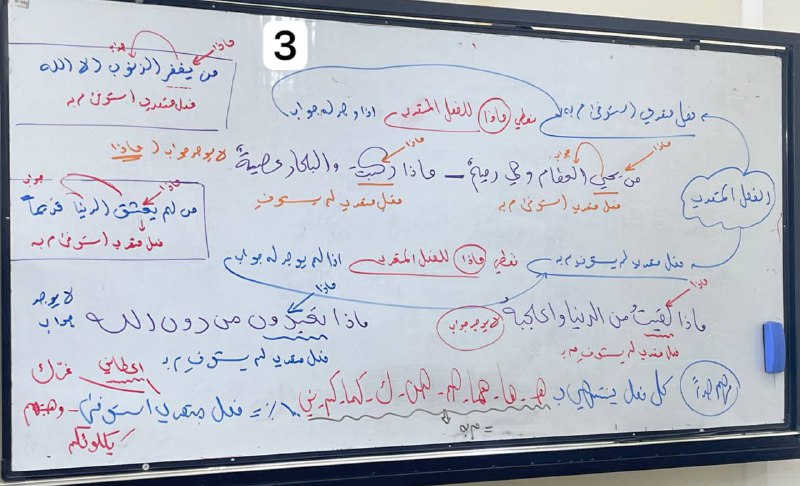 3
ماذا
جواب
من يغفر الذنوب الا الله
فعل متعدي استوفى م به
الفعل المتعدي
فعل متعدي استوفى م به
نعطي ماذا للفعل المتعدي
اذا وجد له جواب
ماذا
جواب
من يحيي العظام وهي رميم – ماذا ركبت والبلاد عصية
ماذا
لا يوجد جواب لـ ماذا
فعل متعدي استوفى م به
فعل متعدي لم يستوف
ماذا
جواب
من لم يعشق الدنيا قديماً
فعل متعدي استوفى م به
فعل متعدي لم يستوف م به
نعطي ماذا للفعل المتعدي
اذا لم يوجد له جواب
ماذا
ماذا لقيت من الدنيا واعجبهُ
لا يوجد جواب
فعل متعدي لم يستوف م به
ماذا
ماذا تعبدون من دون الله
لا يوجد جواب
فعل متعدي لم يستوف م به
مهم جداً
كل فعل ينتهي بـ هـ - ها - هما - هم - هن - ك - كما - كم - ني
= م به
= فعل متعدي استوفى
اعطاني
غرّك
وهبتهم
يكلؤكم